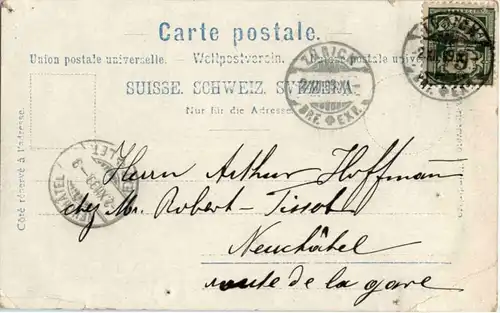 Carte postale.
Union postale universelle. Weltpostverein. postale universelle
SUISSE. SCHWEIZ. SVIZZERA.
Nur für die Adresse
Côté réservé à l'adresse
ZÜRICH
BRF. EXP.
BRF. EXP.
Herrn Arthur Hoffmann
chez Mr. Robert-Tissot
Neuchâtel
route de la gare